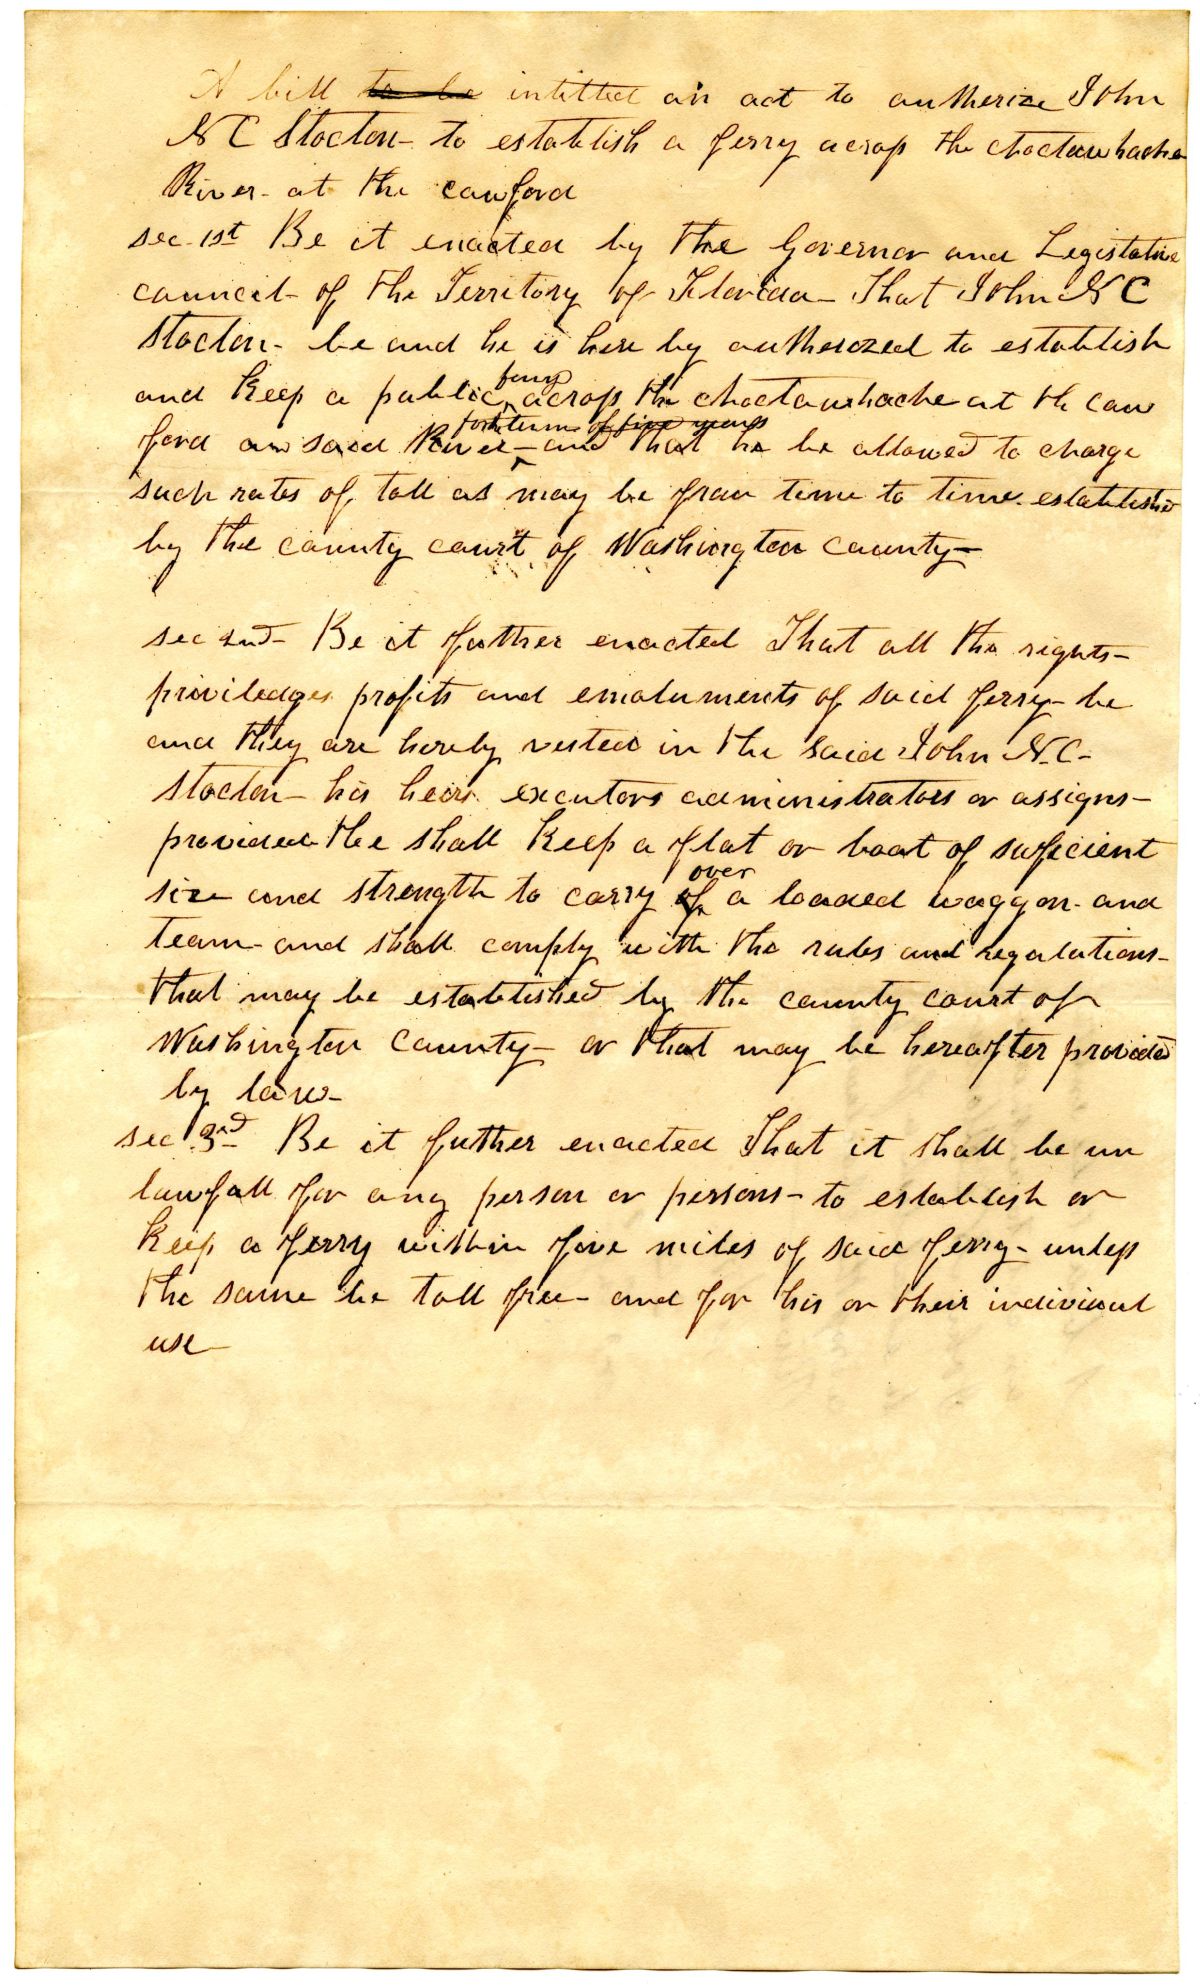 A bill to be intitled an act to autherize John
N C Stocton - to establish a ferry across the choctawhache
River - at the cowford
sec. 1st Be it enacted by the Governor and Legislative
council - of the Territory of Florida - That John N C
Stocton - be and he is here by autherozed to establish
and keep a public ferry across the choctawhache at th cow
ford on said River - for the term of five years and that he be allowed to charge
such rates of toll as may be from time to time established
by the county court of Washington county -
sec 2nd - Be it futher enacted That all the rights -
priviledges profits and emoluments of said ferry - be
and they are hereby vested in the said John N. C -
Stocton - his heirs executors administrators or assigns -
provided the shall keep a flat or boat of suficient
size and strength to carry of over a loaded waggon - and
team - and shall comply with the rules and regulations -
that may be established by the county court of
Washington county - or that may be hereafter provided
by law -
sec 3rd Be it futher enacted That it shall be un
lawfull for any person or persons - to establish or
keep a ferry within five miles of said ferry - unless
the same be toll free - and for his or their individual
use -